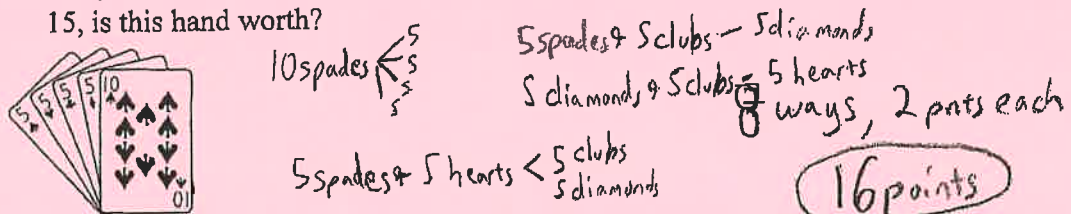 15, is this hand worth?
10 spades 5
5
5
5
5 spades & 5 clubs - 5 diamonds
5 diamonds & 5 clubs - 5 hearts
8 ways, 2 pnts each
5 spades & 5 hearts < 5 clubs
5 diamonds
16 points
5
5
5
5
10
10